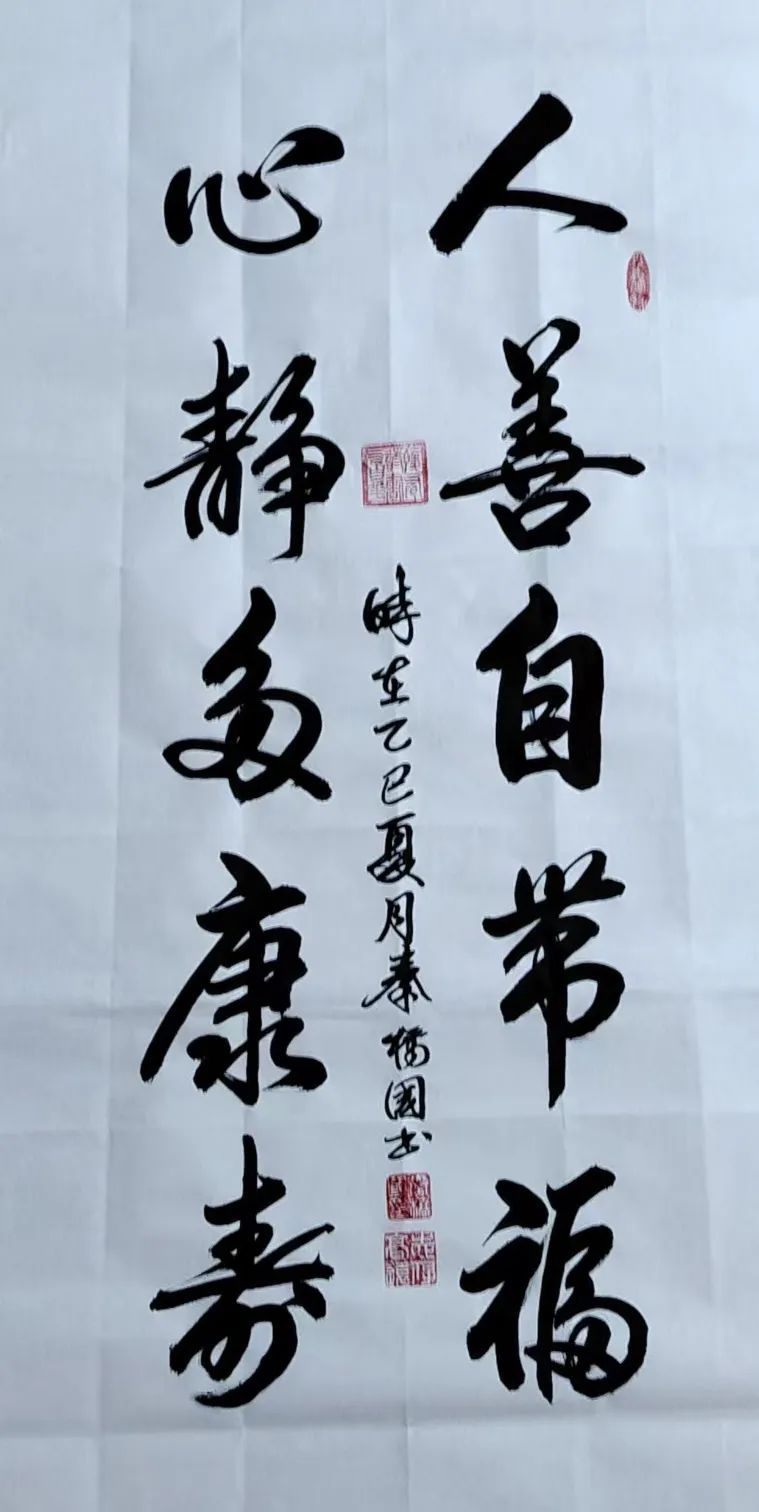 人善自带福
心静多康寿
时在乙巳夏月秦橋國书